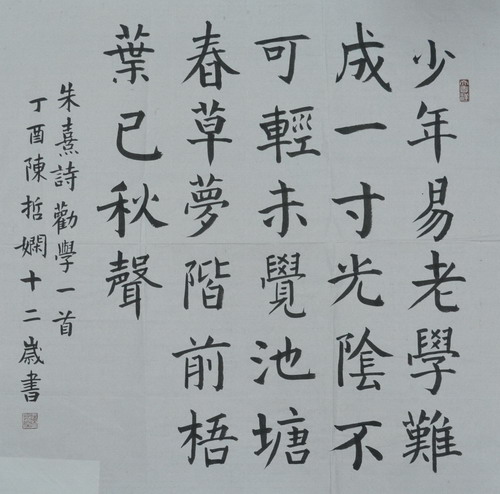 少年易老學難
成一寸光陰不
可輕未覺池塘
春草夢階前梧
葉已秋聲
朱熹詩勸學一首
丁酉陳哲嫻十二歲書